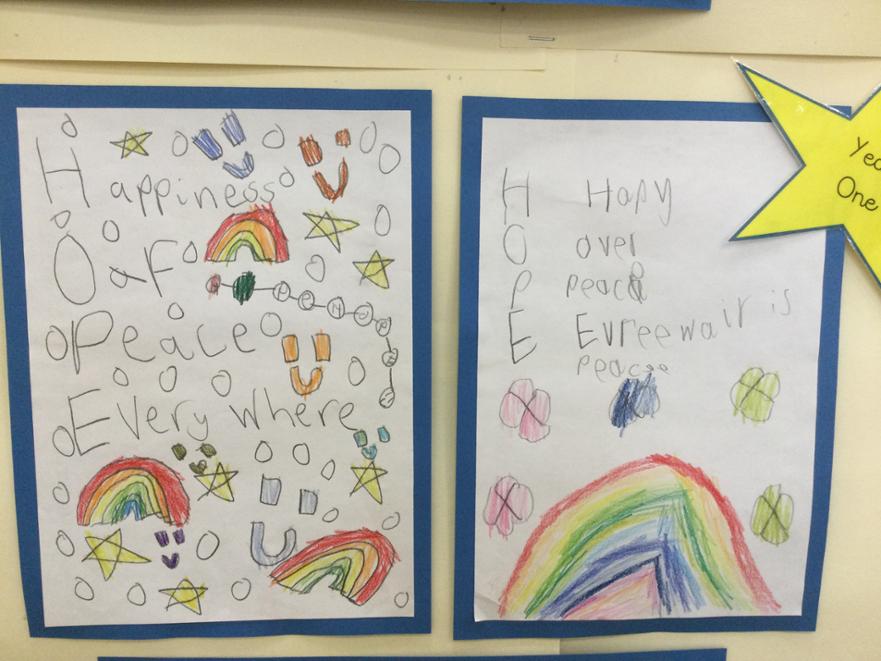 Happiness
Oaf
Peace
Every where
H Hapy
O over
P peace
E Evreewair is
peace
Year
One